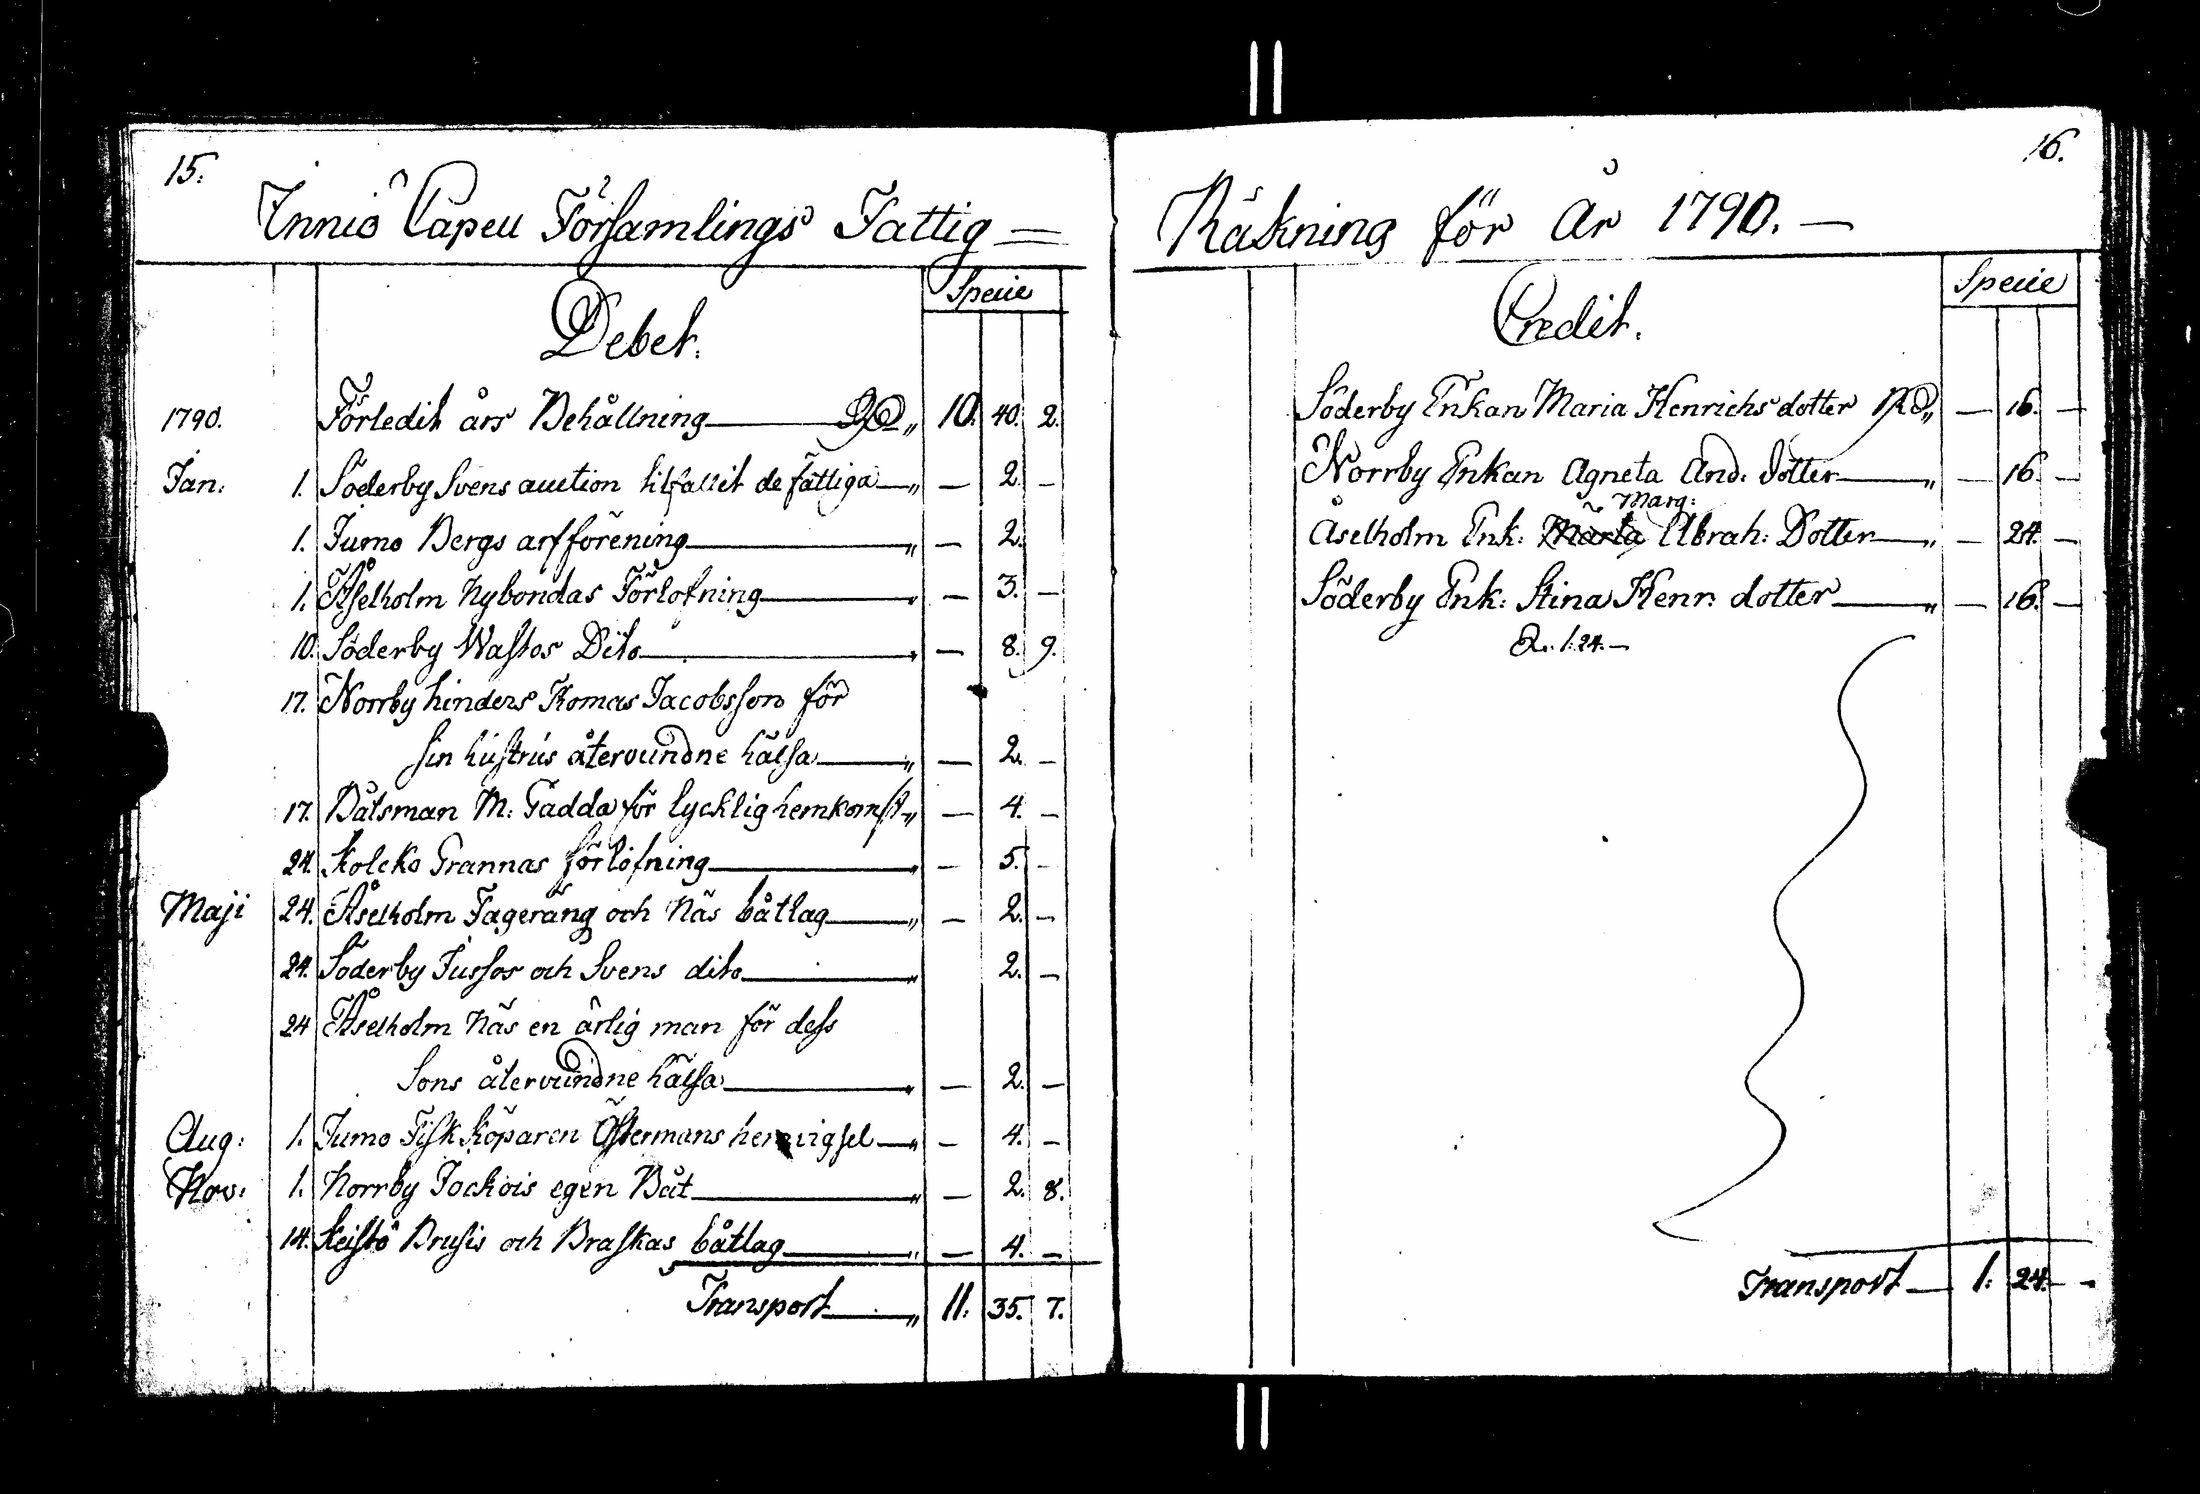 15.
Inniö Capell Församlings Fattig =
Specie
Debet.
1790. Förledit års Behållning — RD „ 10. 40. 2.
Jan: 1. Söderby Svens auction tilfallit de fattiga — „ — 2. —
1. Jumo Bergs arfförening — „ — 2.
1. Åselholm Nybondas Förlofning — „ — 3. —
10. Söderby Wastos Dito — „ — 8. 9.
17. Norrby hinders Thomas Jacobsson för
sin hustrus återvundne hälsa — „ — 2. —
17. Båtsman M: Gädda för lycklig hemkomst — „ — 4. —
24. Kolcko Grannas förlofning — „ — 5. —
Maji 24. Åselholm Fageräng och Näs båtlag — „ — 2. —
24. Söderby Jussos och Svens dito — „ 2. —
24 Åselholm Näs en ärlig man för dess
Sons återvundne hälsa — „ — 2. —
Aug: 1. Jumo Fisk köparen Östermans hemvigsel — „ — 4. —
Nov: 1. Norrby Jockois egen Båt — „ — 2. 8.
14. Keistö Brusis och Braskas båtlag — „ — 4. —
Transport — „ 11. 35. 7.
16.
Räkning för År 1790. —
Specie
Credit.
Söderby Enkan Maria Henrichs dotter RD „ — 16. —
Norrby Enkan Agneta And: dotter — „ — 16. —
Marg:
Åselholm Enk: Märta Abrah: Dotter — „ — 24. —
Söderby Enk: Stina Henr: dotter — „ — 16. —
R. 1: 24. —
Transport — 1: 24. —